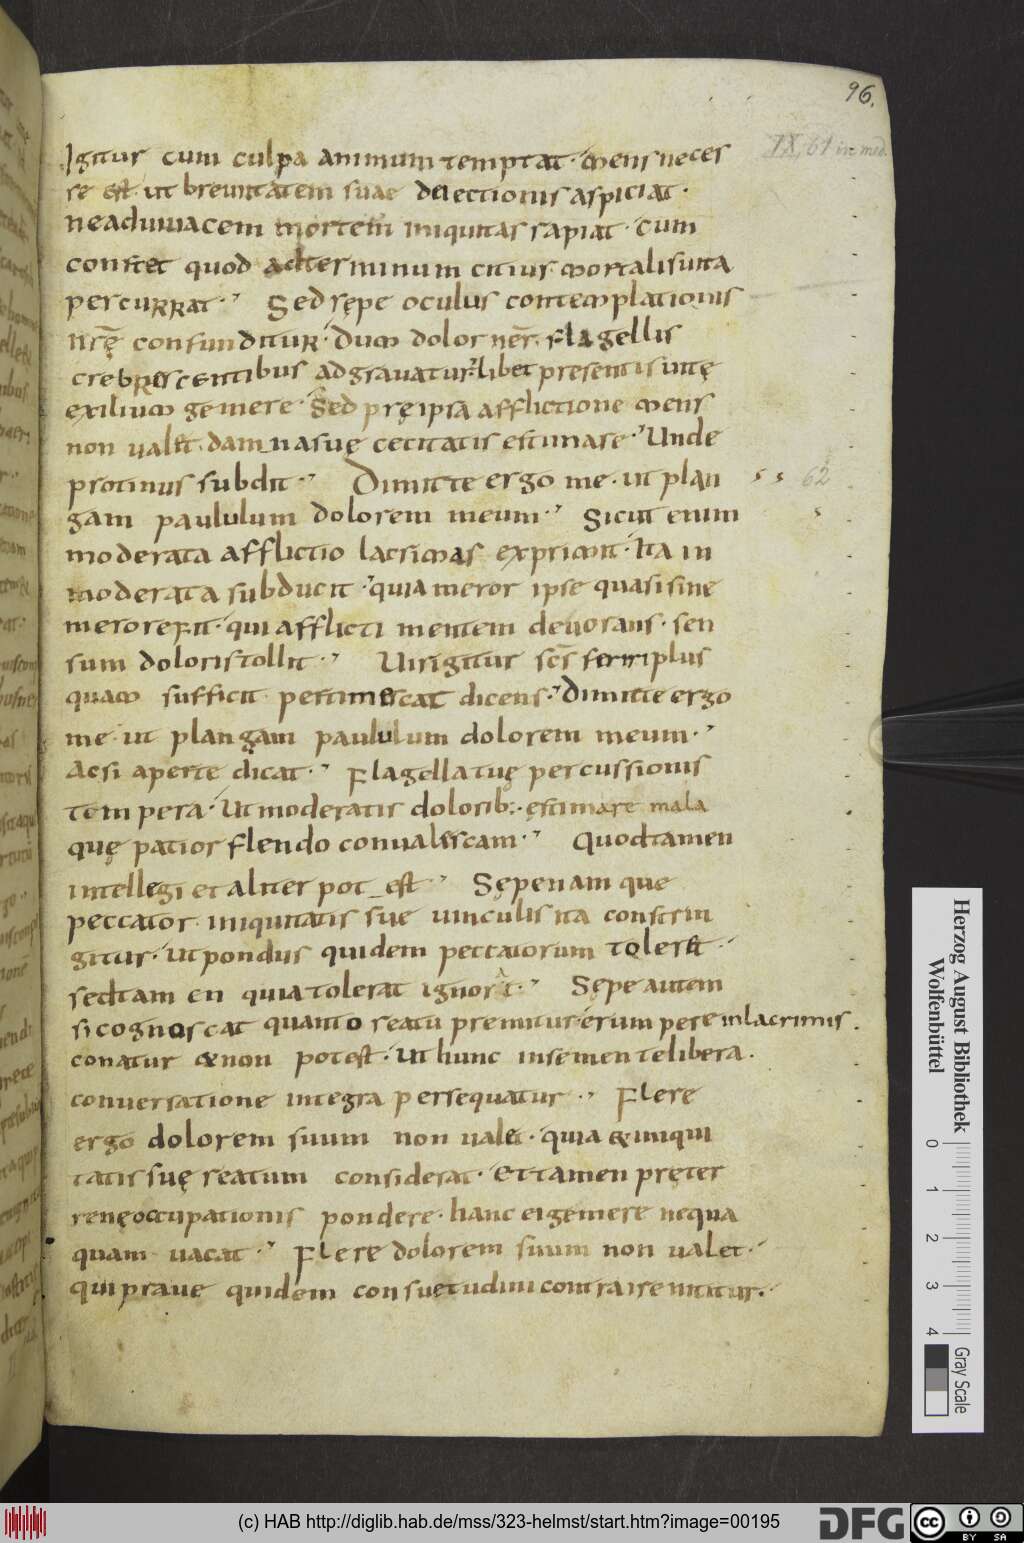 96.
IX, 61 in med.
Igitur cum culpa animum temptat· mens neces
se est· ut breuitatem suae delectionis aspiciat·
ne ad uiuacem mortem iniquitas rapiat· Cum
constet quod ad terminum citius mortalis uita
percurrat·' Sed sępe oculus contemplationis
nr̄ę confunditur· Dum dolor ner̄· flagellis
crebrescentibus adgrauatur· libet presentis uitę
exilium gemere· Sed prę ipsa afflictione mens
non ualet· damna suę cecitatis estimare·' Unde
protinus subdit·' Dimitte ergo me· ut plan
62
gam paululum dolorem meum·' Sicut enim
moderata afflictio lacrimas exprimit· Ita in
moderata subducit·' quia meror ipse quasi sine
merore fit· qui afflicti mentem deuorans· sen
sum doloris tollit·' Uir igitur sc̄s feriri plus
quam sufficit pertimescat dicens·' Dimitte ergo
me· ut plangam paululum dolorem meum·'
Ac si aperte dicat·' Flagella tuę percussionis
tempera· Ut moderatis dolorib;· ęstimare mala
quę patior flendo conualescam·' Quod tamen
intellegi et aliter pot est·' Sępe namque
peccator iniquitatis suę uinculis ita constrin
gitur· Ut pondus quidem peccatorum toleret·
sed tamen quia tolerat ignoret·' Sępe autem
si cognoscat quanto reatu premitur· erumpere in lacrimis
conatur & non potest· Ut hunc in se mente libera·
conuersatione integra persequatur·' Flere
ergo dolorem suum non ualet· quia & iniqui
tatis suę reatum considerat· Et tamen pręter
renę occupationis pondere· hanc ei gemere nequa
quam uacat·' Flere dolorem suum non ualet·
qui praue quidem consuetudini contraire nititur·
Herzog August Bibliothek
Wolfenbüttel
0 1 2 3 4
Gray Scale
(c) HAB http://diglib.hab.de/mss/323-helmst/start.htm?image=00195
DFG
cc BY SA